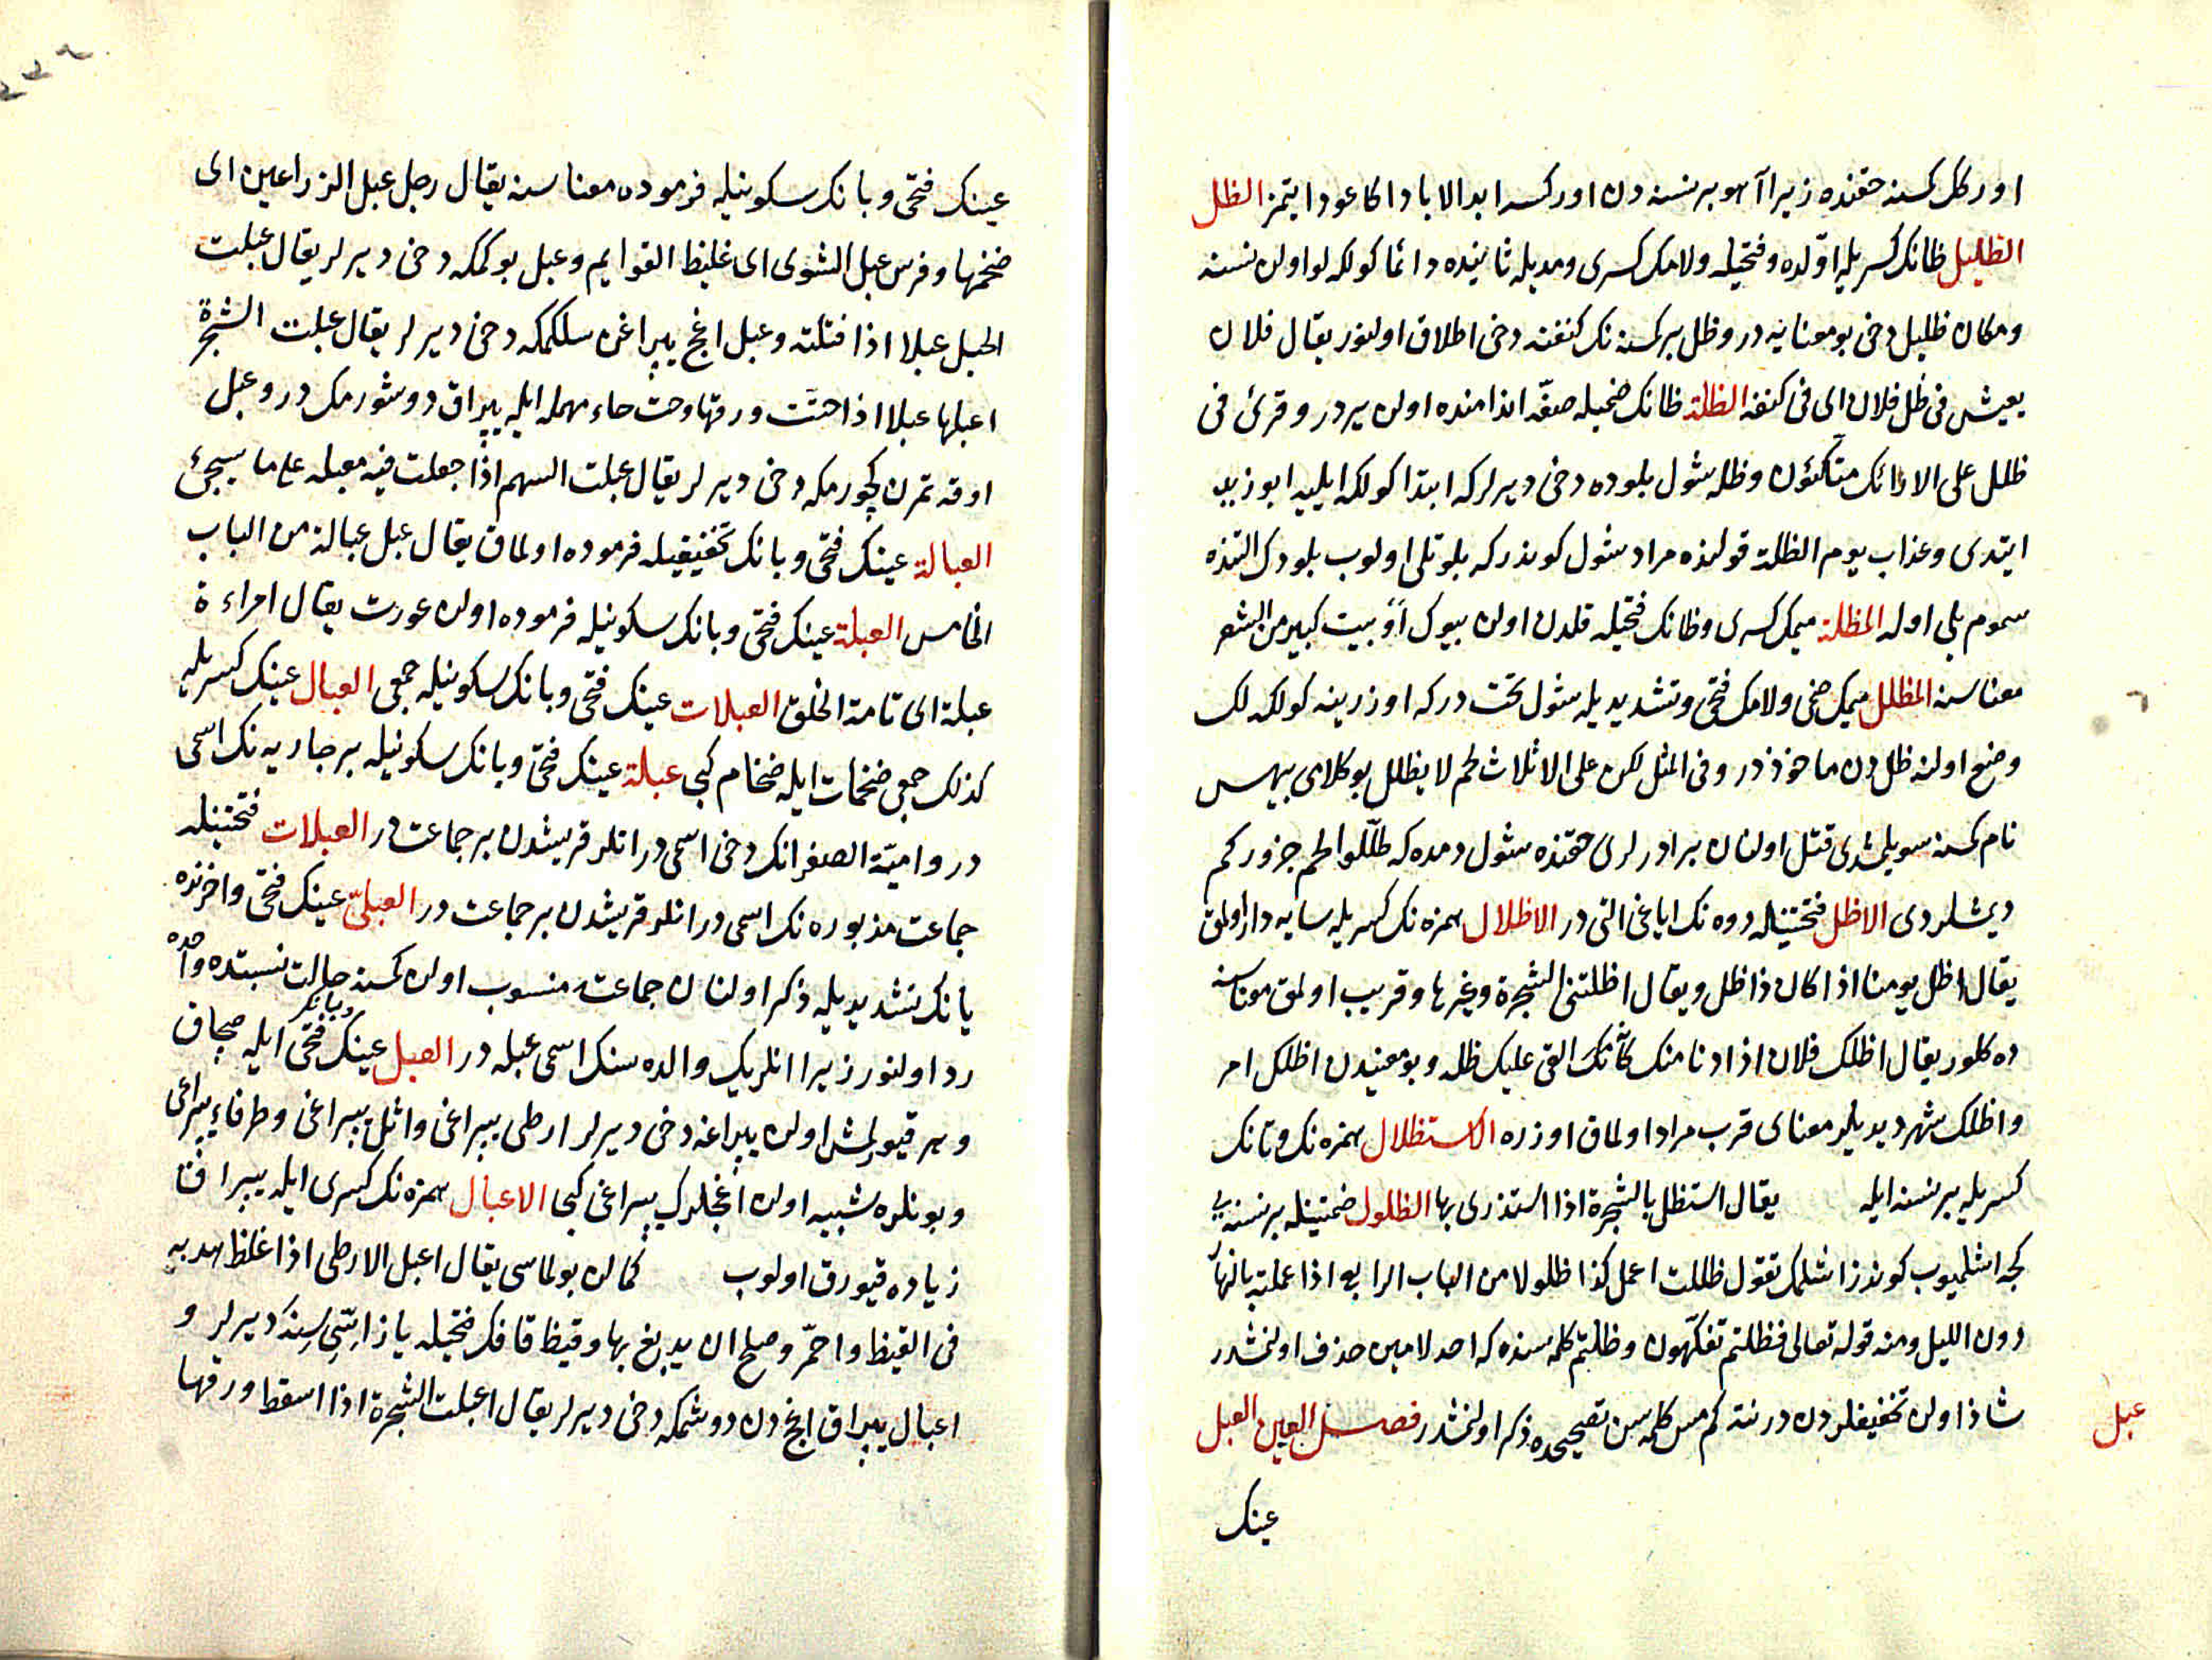 اوركك كسنه حقنده زيرا آهو بر نسنه دن اوركسه ابدا لاباد اكا عودا يتمز الظل
الظليل ظانك كسريله اوّلده وفتحيله ولامك كسرى ومديله ثانيده دائما كولكه لو اولن نسنه
ومكان ظليل دخى بو معنايه در وظل بر كسنه نك كنفنه دخى اطلاق اولنور يقال فلان
يعيش فى ظل فلان اى فى كنفه الظلة ظانك ضميله صفّه اندامنده اولن يردر وقرئ فى
ظلل على الارائك متكئون وظله شول بلوده دخى ديرلر كه ابتدا كولكه ايليه ابو زيد
ايتدى وعذاب يوم الظلة قولنده مراد شول كوندر كه بلوتلى اولوب بلودك التنده
سموم يلى اوله المظلة ميمك كسرى وظانك فتحيله قلدن اولن بيوك او بيت كبير من الشعر
معناسنه المظلل ميمك ضمى ولامك فتحى وتشديديله شول تخت در كه اوزرينه كولكه لك
وضع اولنه ظل دن ماخوذدر وفى المثل لكن على الاثلاث لحم لا يظلل بو كلامى بيهس
نام كسنه سويلمشدى قتل اولنان برادرلرى حقنده شول دمده كه ظلّلوا لحم جزوركم
ديمشلردى الاظل فتحتينله دوه نك اياغى التى در الاظلال همزه نك كسريله سايه دار اولمق
يقال اظل يومنا اذا كان ذا ظل ويقال اظلتنى الشجرة وغيرها وقريب اولمق معناسنه
ده كلور يقال اظلك فلان اذا دنا منك كأنك القى عليك ظله وبو معنيدن اظلك امر
واظلك شهر ديديلر معناى قرب مراد اولماق اوزره الاستظلال همزه نك وتانك
كسريله بر نسنه ايله يقال استظل بالشجرة اذا استذرى بها الظلول ضمتينله بر نسنه يى
كجه اشلميوب كوندز اشلمك تقول ظللت اعمل كذا ظلولا من الباب الرابع اذا عملته بالنهار
دون الليل ومنه قوله تعالى فظلتم تفكهون وظلتم كلمه سنده كه احد لامين حذف اولنمشدر
شاذ اولن تخفيفلردن در نته كم مس كلمه سن تصحيحده ذكر اولنمشدر فصل العين العبل
عبل
عينك
عينك فتحى وبانك سكونيله فرموده معناسنه يقال رجل عبل الذراعين اى
ضخمها وفرس عبل الشوى اى غليظ القوايم وعبل بوكمكه دخى ديرلر يقال عبلت
الحبل عبلا اذا فتلته وعبل اغج يپراغن سلكمكه دخى ديرلر يقال عبلت الشجرة
اعبلها عبلا اذا حتتت ورقها وحت حاء مهمله ايله يپراق دوشورمك در وعبل
اوقه تمرن كچورمكه دخى ديرلر يقال عبلت السهم اذا جعلت فيه معبله على ما سيجئ
العبالة عينك فتحى وبانك تخفيفيله فرموده اولماق يقال عبل عبالة من الباب
الخامس العبلة عينك فتحى وبانك سكونيله فرموده اولن عورت يقال امراءة
عبلة اى تامة الخلق العبلات عينك فتحى وبانك سكونيله جمعى العبال عينك كسريله
كذلك جمعى ضخمات ايله ضخام كبى عبلة عينك فتحى وبانك سكونيله بر جاريه نك اسمى
در واميّة الصغرانك دخى اسمى در انلر قريشدن بر جماعت در العبلات فتحتينله
جماعت مذبوره نك اسمى در انلر قريشدن بر جماعت در العبلىّ عينك فتحى واخرنده
يانك تشديديله ذكر اولنان جماعته منسوب اولن كسنه حالت نسبتده واحده
رد اولنور زيرا انلريك والده سنك اسمى عبله در العبل عينك وبانك فتحى ايله صچاق
وهر قيورلمش اولن يپراغه دخى ديرلر ارطى يپراغى واثل يپراغى وطرفاء يپراغى
وبونلره شبيه اولن اغجلرك يپراغى كبى الاعبال همزه نك كسرى ايله يپراق
زياده قيورق اولوب كمالن بولماسى يقال اعبل الارطى اذا غلظ هدبه
فى القيظ واحمّر وصلح ان يدبغ بها وقيظ قافك فتحيله ياز اسّى سنه ديرلر و
اعبال يپراق اغج دن دوشمكه دخى ديرلر يقال اعبلت الشجرة اذا اسقط ورقها